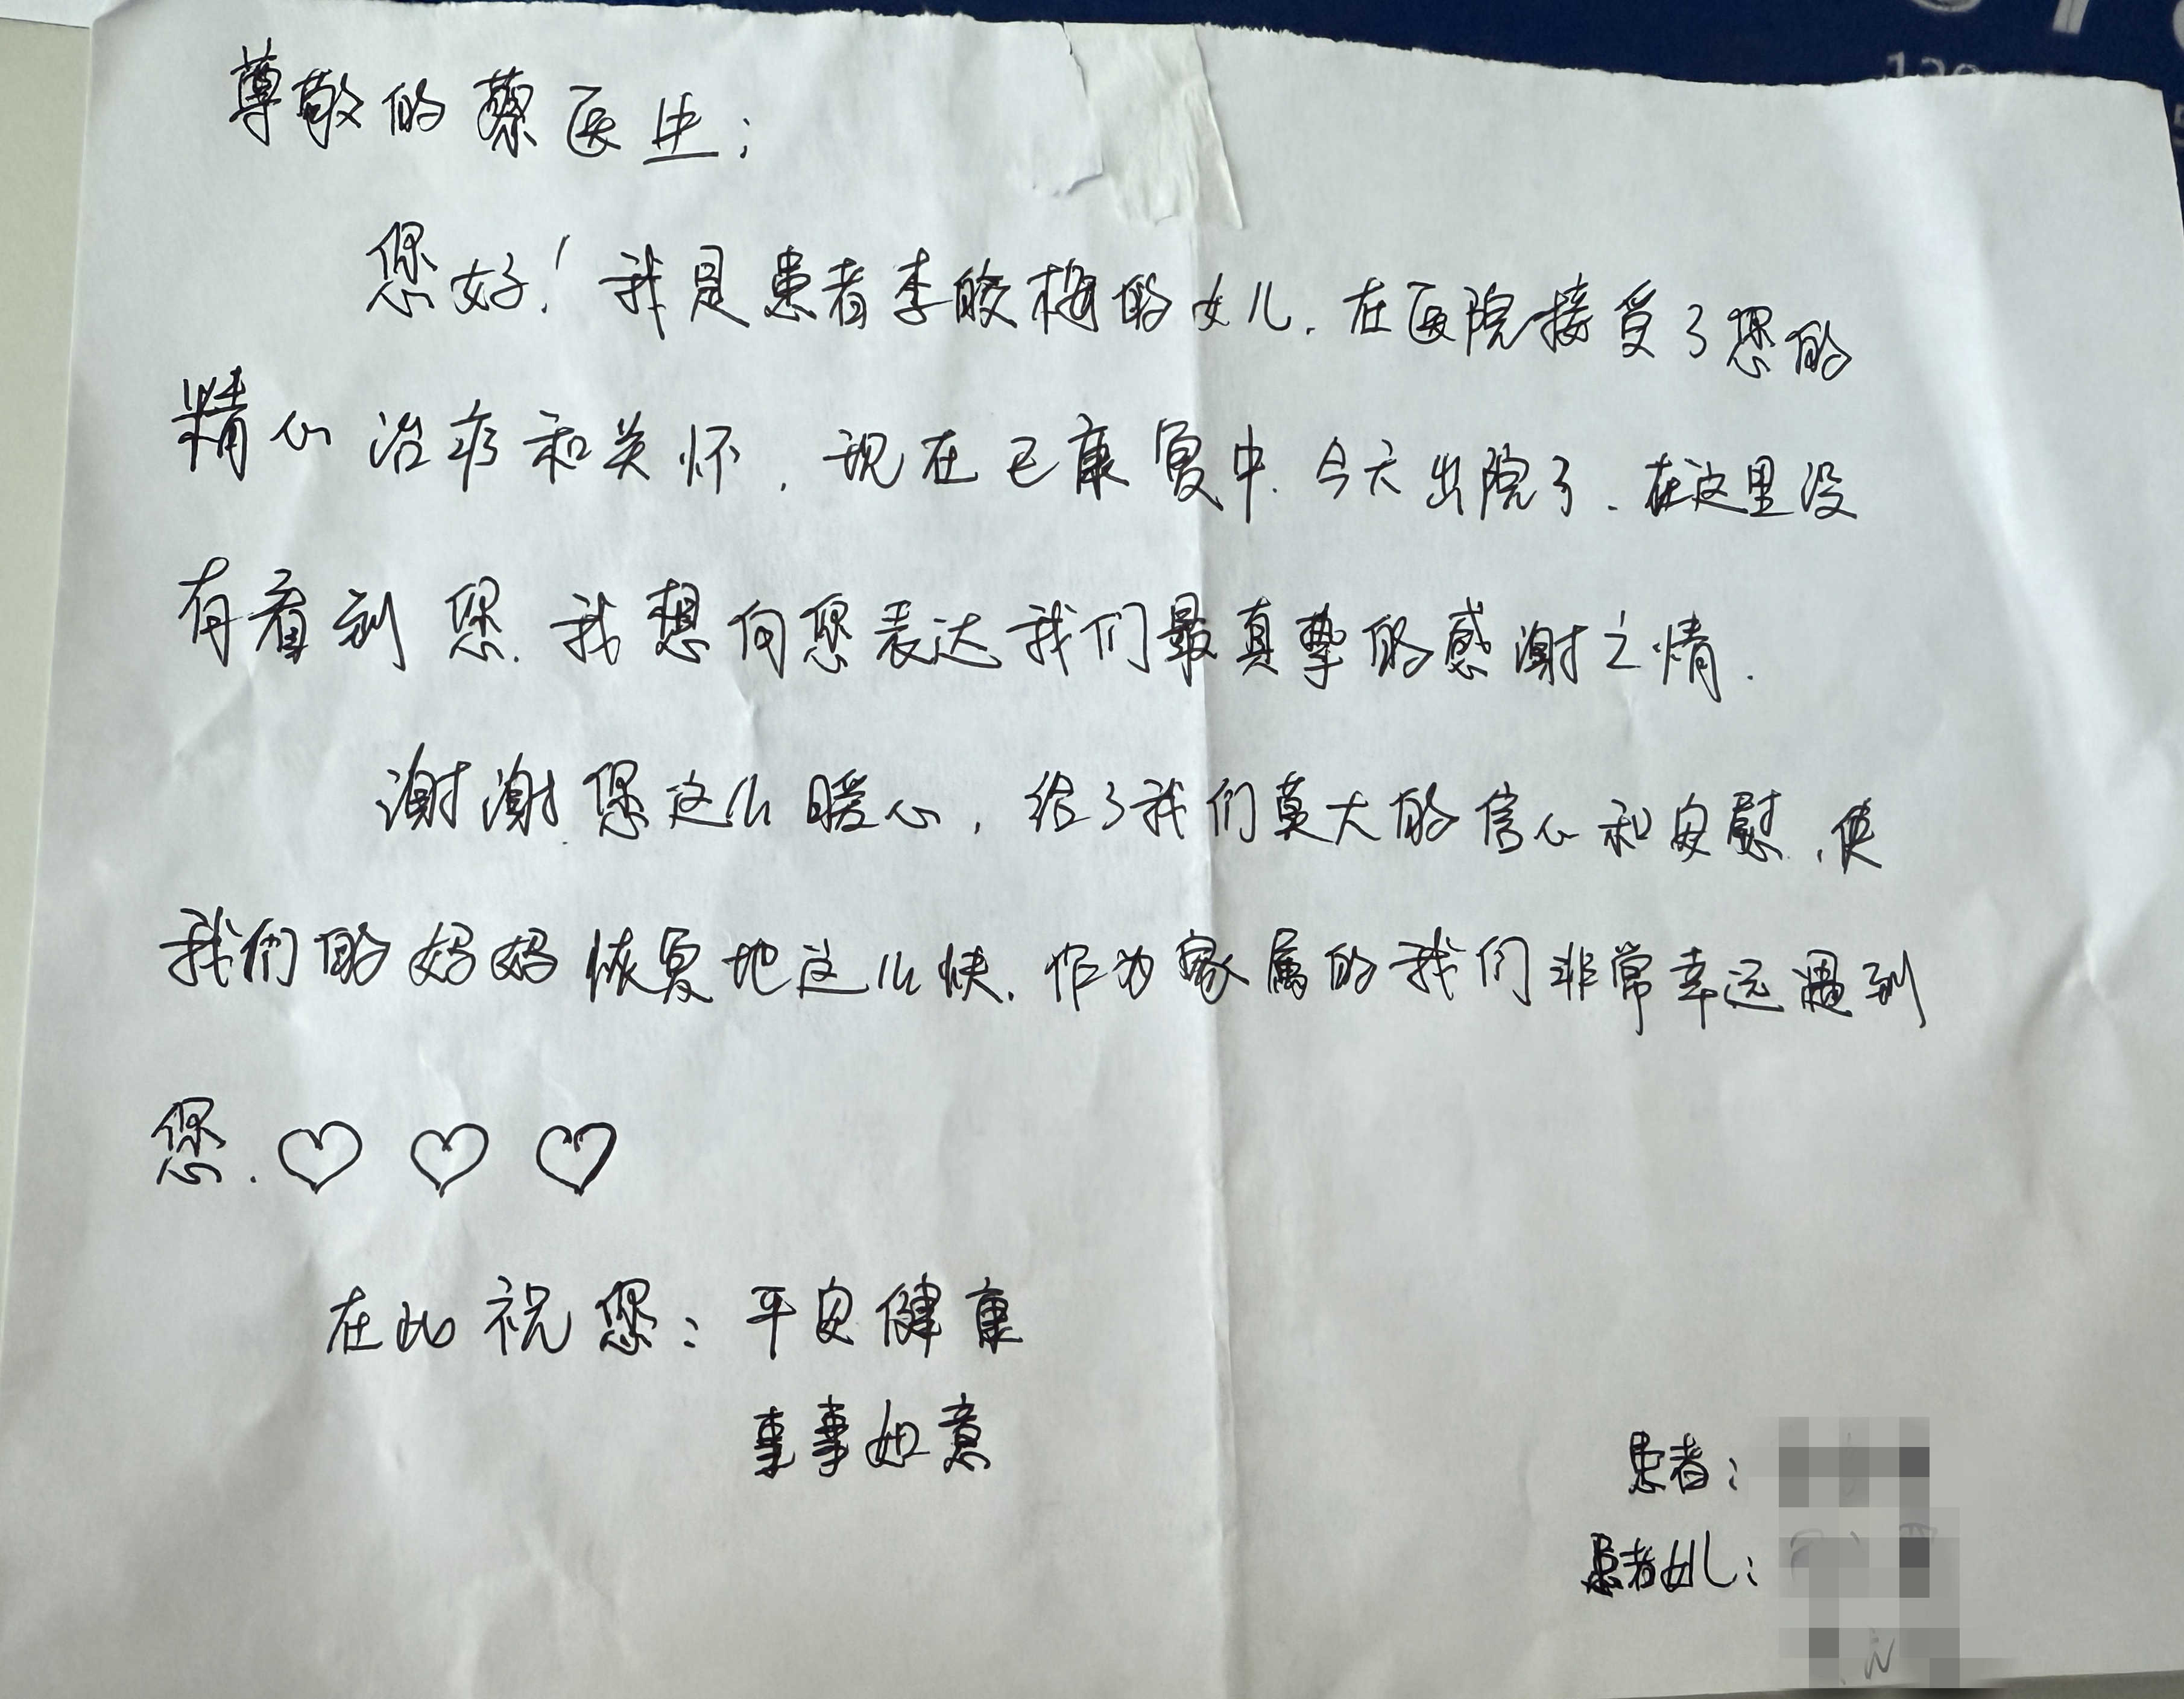 尊敬的蔡医生:
您好!我是患者李皎梅的女儿.在医院接受了您的
精心治疗和关怀,现在已康复中.今天出院了.在这里没
有看到您.我想向您表达我们最真挚的感谢之情.
谢谢您这么暖心,给了我们莫大的信心和安慰,使
我们的妈妈恢复地这么快.作为家属的我们非常幸运遇到
您.♡ ♡ ♡
在此祝您:平安健康
事事如意
患者:
患者女儿: